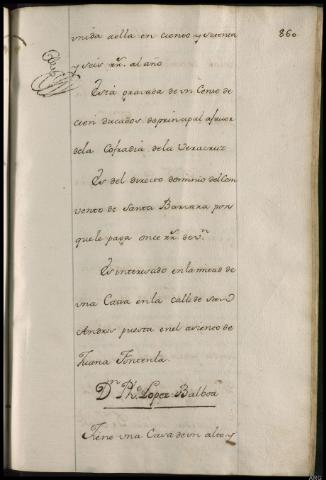 unida aella en ciento y sesenta
860
y seis rr.^s al año
Está gravada de un Censo de
cien ducados de principal afavor
dela Cofradia dela Veracruz
Es del directo dominio del Con
vento de Santa Barvara por
que le paga once rr.^s de v.^n
Es interesado en la mitad de
una Casa en la calle de San
Andres puesta en el asiento de
Juana Fontenla.
D.^n Ph.^e Lopez Balboa
Tiene una Casa de un alto y